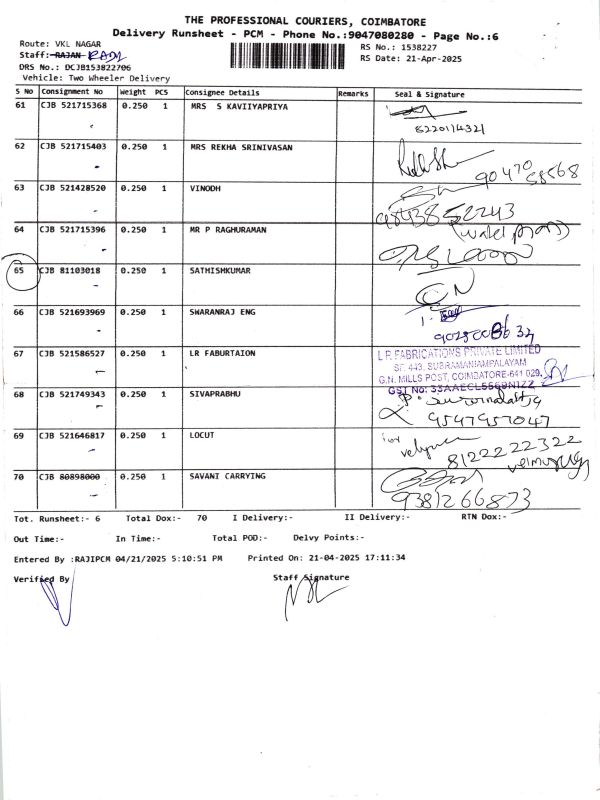 THE PROFESSIONAL COURIERS, COIMBATORE
Delivery Runsheet - PCM - Phone No.:9047080280 - Page No.:6
Route: VKL NAGAR
RS No.: 1538227
Staff: RAJAN
RS Date: 21-Apr-2025
DRS No.: DCJB153822706
Vehicle: Two Wheeler Delivery
S No Consignment No Weight PCS Consignee Details Remarks Seal & Signature
61 CJB 521715368 0.250 1 MRS S KAVIIYAPRIYA
62 CJB 521715403 0.250 1 MRS REKHA SRINIVASAN
90470 58568
63 CJB 521428520 0.250 1 VINODH
9843852243
64 CJB 521715396 0.250 1 MR P RAGHURAMAN
65 CJB 81103018 0.250 1 SATHISHKUMAR
66 CJB 521693969 0.250 1 SWARANRAJ ENG
67 CJB 521586527 0.250 1 LR FABURTAION
L R FABRICATIONS PRIVATE LIMITED
SF. 443, SUBRAMANIAMPALAYAM
G.N. MILLS POST, COIMBATORE-641 029.
GST No: 33AAECL5569N1ZZ
68 CJB 521749343 0.250 1 SIVAPRABHU
9547957047
69 CJB 521646817 0.250 1 LOCUT
for
8122222322
70 CJB 80898000 0.250 1 SAVANI CARRYING
9381266873
Tot. Runsheet:- 6 Total Dox:- 70 I Delivery:- II Delivery:- RTN Dox:-
Out Time:- In Time:- Total POD:- Delvy Points:-
Entered By :RAJIPCM 04/21/2025 5:10:51 PM Printed On: 21-04-2025 17:11:34
Verified By Staff Signature